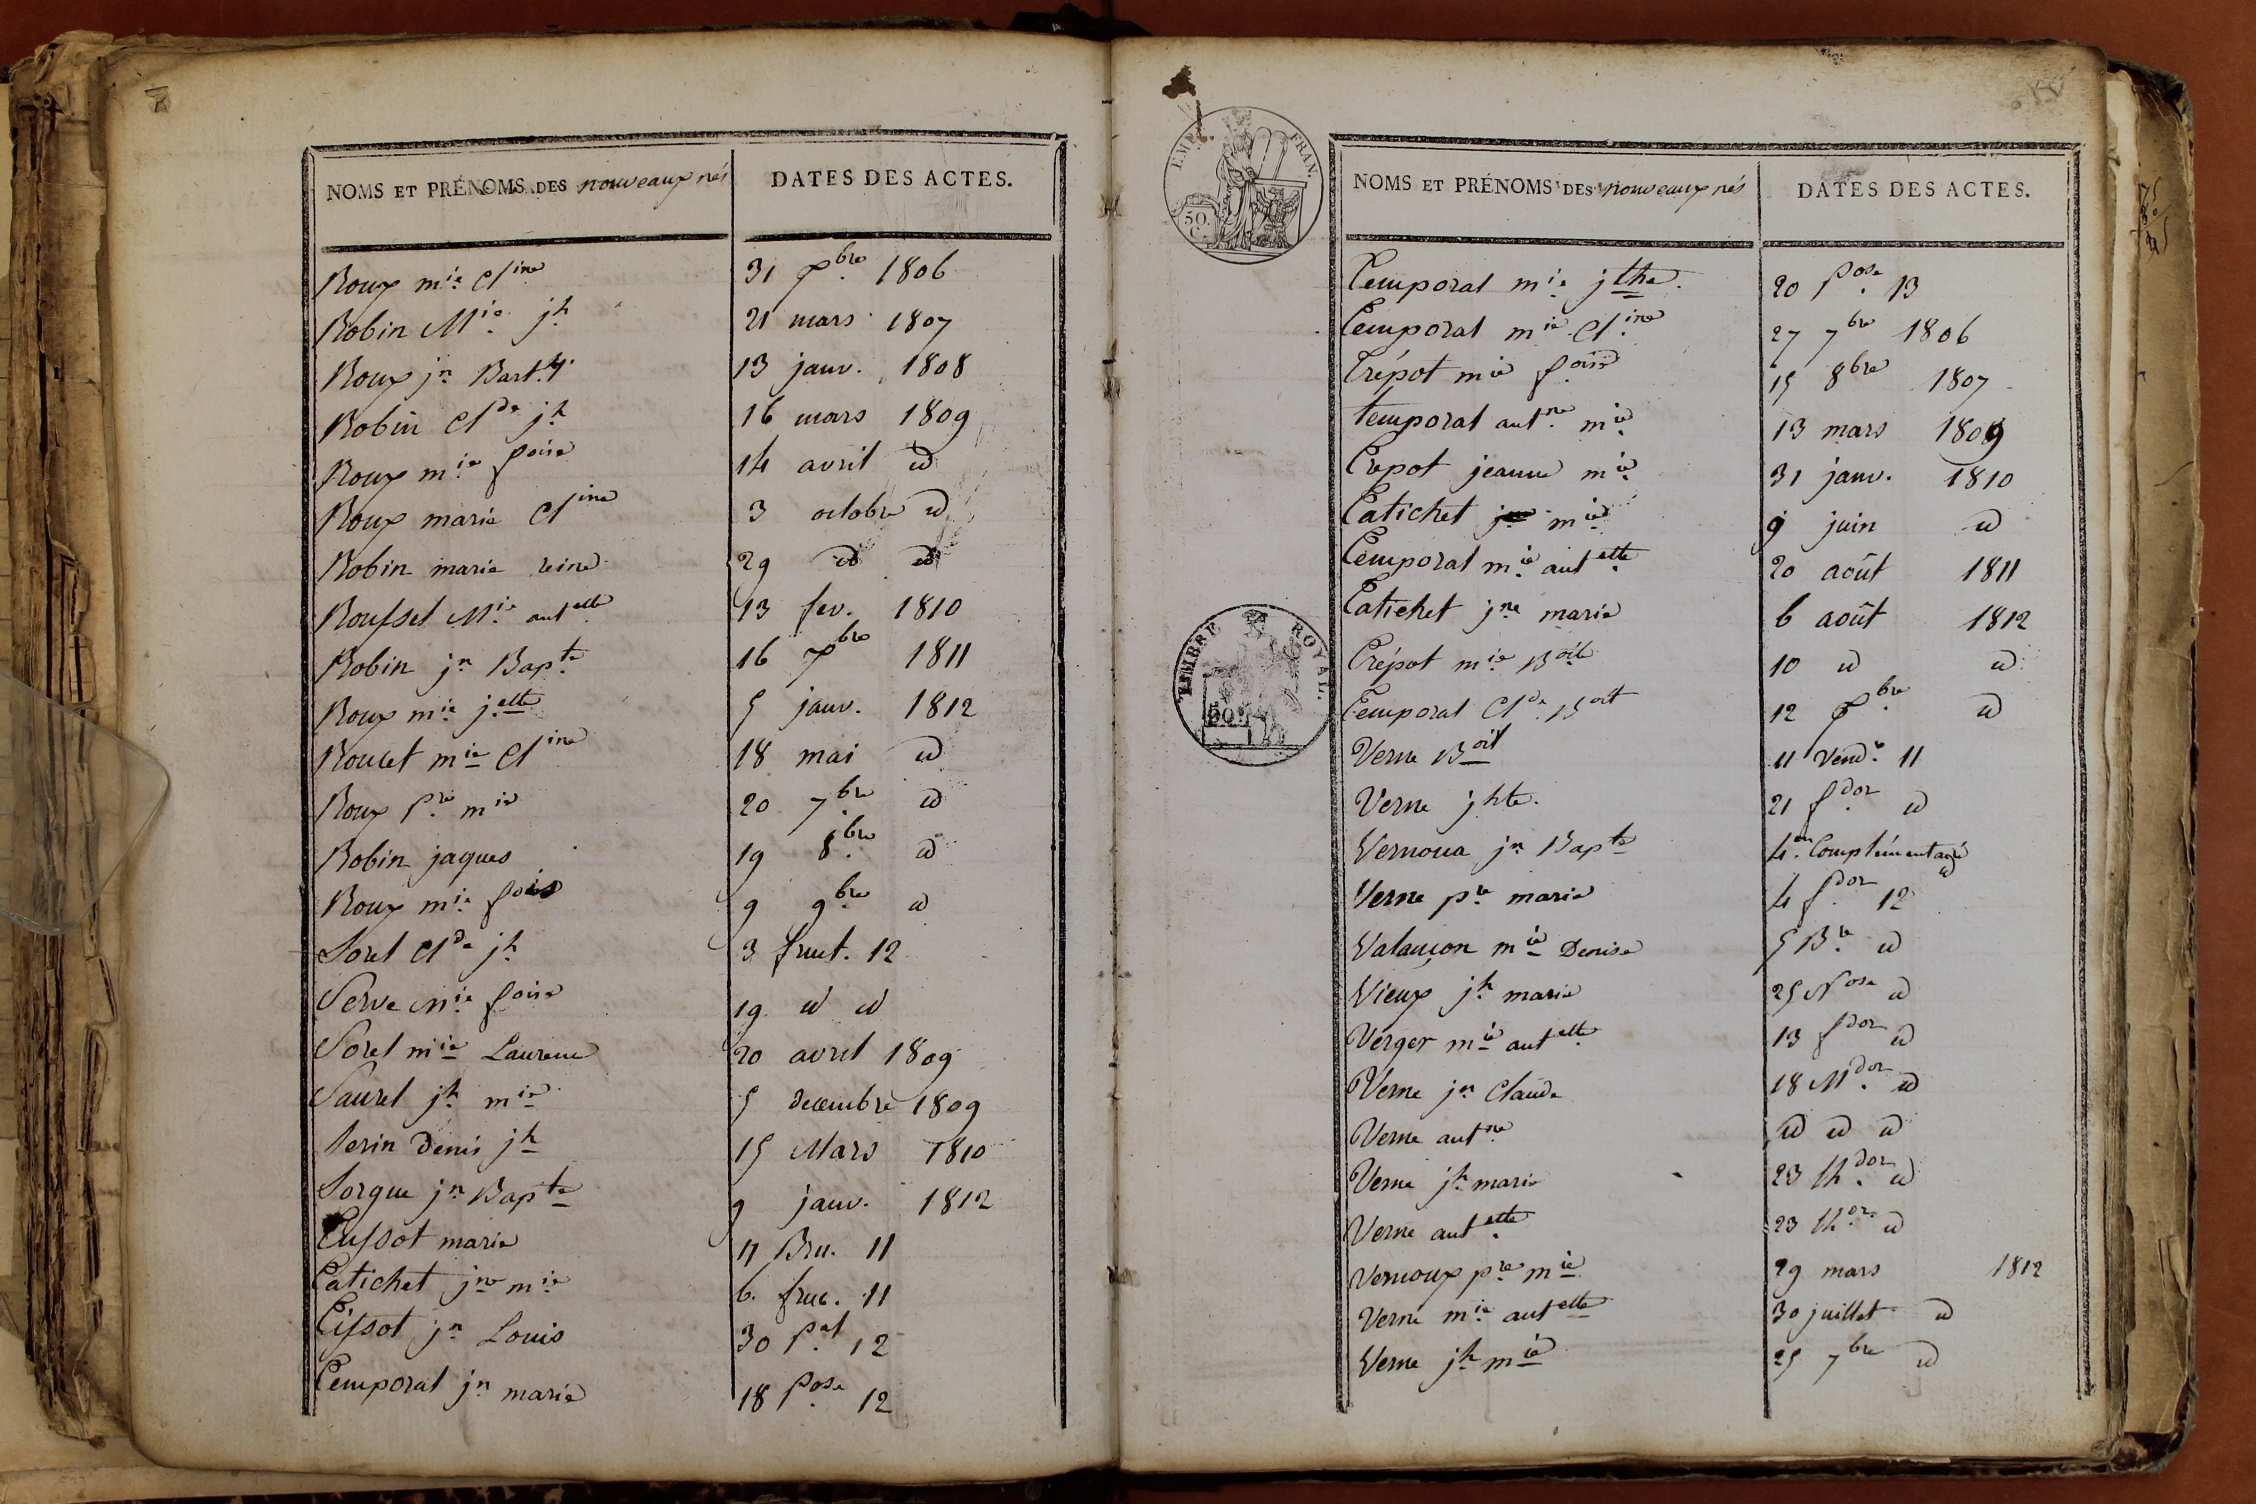 NOMS ET PRÉNOMS DES nouveaux nés DATES DES ACTES.
Roux mie Cline 31 xbre 1806
Robin Mie jh 21 mars 1807
Roux jn Bart.y 13 janv. 1808
Robin Clde jh 16 mars 1809
Roux mie foise 14 avril id
Roux marie Cline 3 octobre id
Robin marie reine 29 id id
Rousset Mie antette 13 fev. 1810
Robin jn Bapte 16 xbre 1811
Roux mie jette 5 janv. 1812
Roulet mie Cline 18 mai id
Roux Pre mie 20 7bre id
Robin jaques 19 8bre id
Roux mie fois 9 9bre id
Sorel Clde jh 3 fruct. 12
Serve Mie foise 19 id id
Sorel mie Laurence 20 avril 1809
Saurel jh mie 5 decembre 1809
Serin Denis jh 15 Mars 1810
Sorgue jn Bapte 9 janv. 1812
Tussot marie 11 Bru. 11
Tatichet jne mie 6 fruc. 11
Tissot jn Louis 30 Pal 12
Temporal jn marie 18 Pose 12
EMP. FRAN.
50. C.
NOMS ET PRÉNOMS DES nouveaux nés DATES DES ACTES.
Temporal mie jthe 20 Pose 13
Temporal mie Cline 27 7bre 1806
Trépot mie foise 15 8bre 1807
temporal antne mie 13 mars 1809
Trepot jeanne mie 31 janv. 1810
Tatichet mie 9 juin id
Temporal mie antette 20 août 1811
Tatichet jne marie 6 août 1812
TIMBRE ROYAL.
50
Trépot mie Boite 10 id id
Temporal Clde Boit 12 xbre id
Verne Boit 11 Vendre 11
Verne jhte. 21 fdor id
Vernoua jn Bapte 4. Complémentaire id
Verne pre marie 4 fdor 12
Valançon mie Denise 5 Bre id
Vieux jh marie 25 Nose id
Verger mie antette 13 fdor id
Verne jn Claude 18 Mdor id
Verne antne id id id
Verne jh marie 23 thdor id
Verne antette 23 thor id
Vernoux pre mie 29 mars 1812
Verne mie antette 30 juillet id
Verne jh mie 25 7bre id